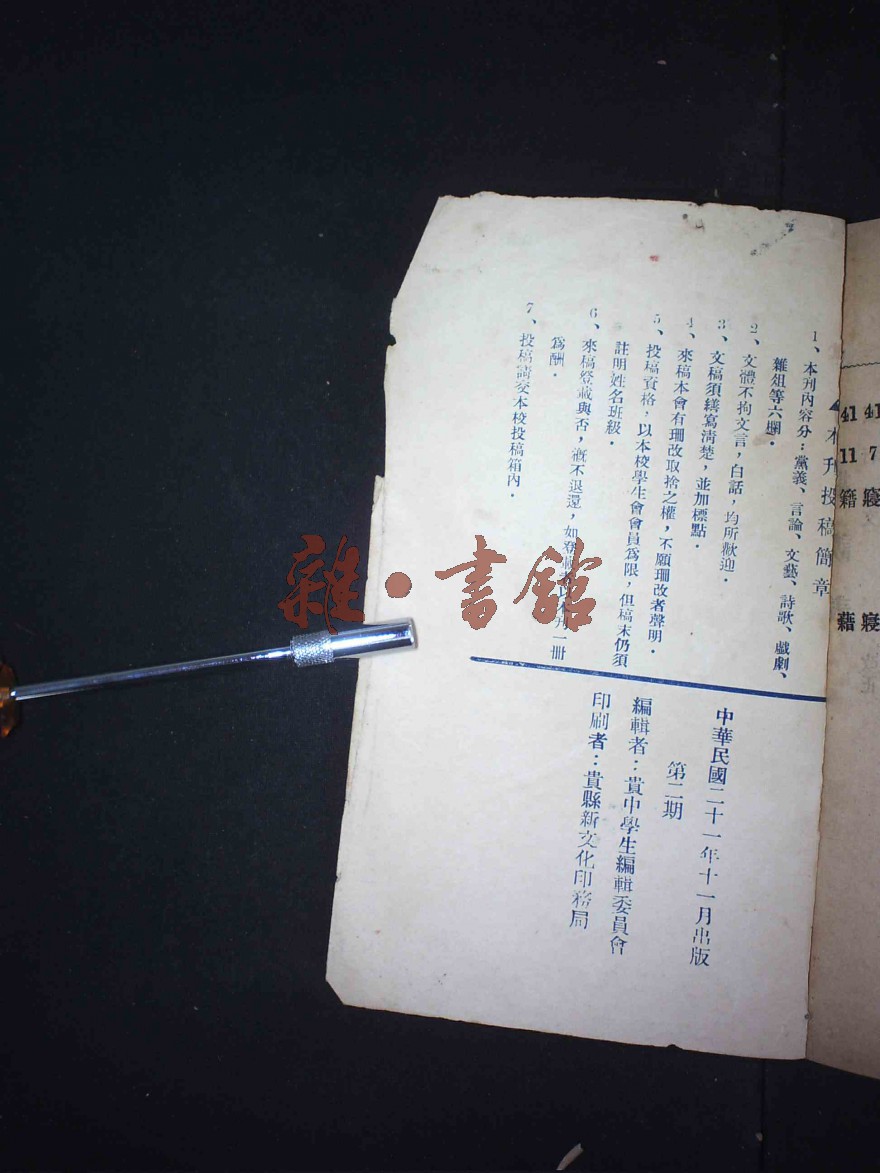 41 7 寢 寢
41 11 籍 藉
▲本刊投稿簡章
1、本刊內容分：黨義、言論、文藝、詩歌、戲劇、
雜俎等六欄．
2、文體不拘文言，白話，均所歡迎．
3、文稿須繕寫清楚，並加標點．
4、來稿本會有珊改取捨之權，不願珊改者聲明．
5、投稿資格，以本校學生會會員爲限，但稿末仍須
註明姓名班級．
6、來稿登載與否，槪不退還，如登載者以本刊一冊
爲酬．
7、投稿請交本校投稿箱內．
中華民國二十一年十一月出版
第二期
編輯者：貴中學生編輯委員會
印刷者：貴縣新文化印務局
雜·書館